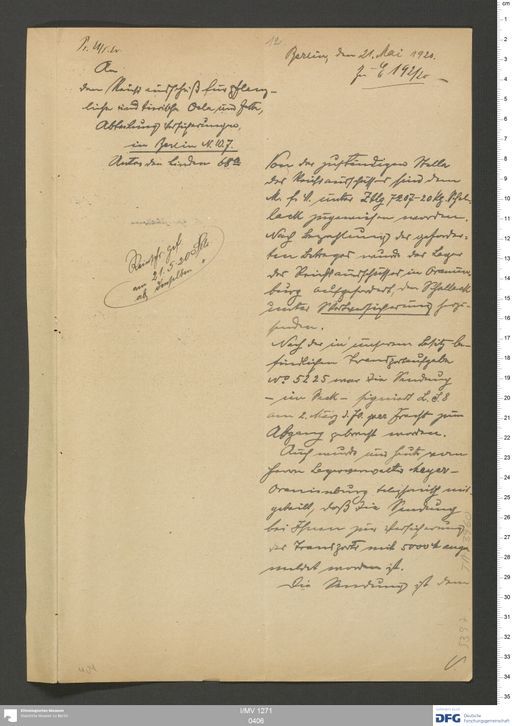 12
Berlin, den 21. Mai 1920.
An
den Reichsausschuß für pflanz-
liche und tierische Oele und Fette,
Abteilung Versicherungen,
in Berlin N.W. 7.
Unter den Linden 68a
Von der zuständigen Stelle
des Reichsausschusses sind dem
M. f. V. unter 7207-20 kg Schel-
lack zugewiesen worden.
Nach Bezahlung des geforder-
ten Betrages wurde das Lager
des Reichsausschusses in Oranien-
burg aufgefordert, den Schellack
unter Wertversicherung herzu-
senden.
Nach der in unserem Besitz be-
findlichen Transportaufgabe
No 5225 war die Sendung
- ein Sack - signiert
am 2. März d. Js. per Fracht zum
Abgang gebracht worden.
Auch wurde uns heute vom
Herrn Lagerverwalter Meyer-
Oranienburg telefonisch mit-
geteilt, daß die Sendung
bei Ihnen zur Versicherung
des Transports mit 5000 M ange
meldet worden ist.
Die Sendung ist dem
am 21.5.20
Ethnologisches Museum
Staatliche Museen zu Berlin
I/MV 1271
0406
DFG Deutsche
Forschungsgemeinschaft